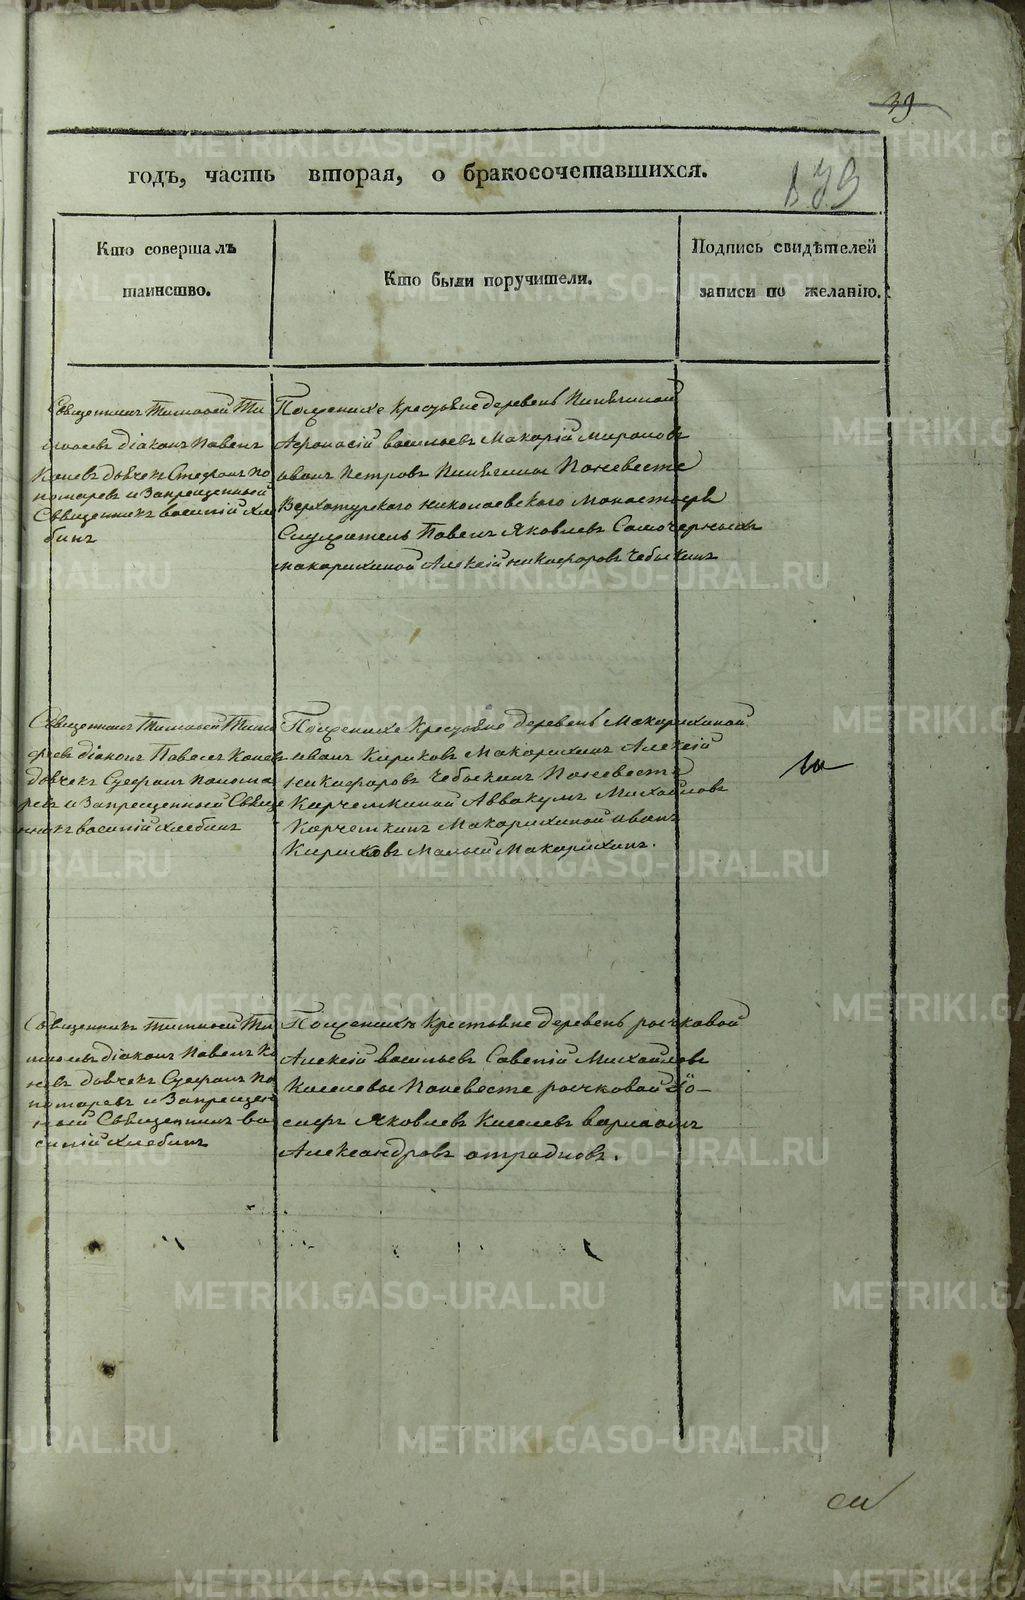 39
годъ, часть вторая, о бракосочетавшихся.
Кто совершалъ
таинство.
Кто были поручители.
Подпись свидѣтелей
записи по желанію.
Священникъ Тимофей Ти
мофеевъ діаконъ Павелъ
Коневъ дьячекъ Стефанъ По
номаревъ и Запрещенный
Священникъ василій Хле
бинъ
По женихе крестьяне деревень
Афонасій васильевъ Макарій Мироновъ
иванъ Петровъ По невесте
Верхотурского николаевского Монастыря
Служитель Павелъ Яковлевъ
макарихиной Алексій никифоровъ Чебыкинъ
Священникъ Тимофей Тимо
феевъ діаконъ Павелъ Коневъ
дьячекъ Стефанъ Понома
ревъ и Запрещенный Свяще
нникъ василій Хлебинъ
По женихе Крестьяне деревень Макарихиной
иванъ Кириковъ Макарихинъ Алексій
никифоровъ Чебыкинъ По невесте
Корчемкиной Аввакумъ Михайловъ
Корчемкинъ Макарихиной иванъ
Кириковъ Малый Макарихинъ.
Священникъ Тимофей Ти
мофеевъ діаконъ Павелъ Ко
невъ дьячекъ Стефанъ По
номаревъ и Запрещен
ный Священникъ ва
силій Хлебинъ
По женихе Крестьяне деревень рычковой
Алексій васильевъ Савелій Михайловъ
Киселевы По невесте рычковой Іо-
сифъ Яковлевъ Киселевъ
Александровъ отрадновъ.
METRIKI.GASO-URAL.RU